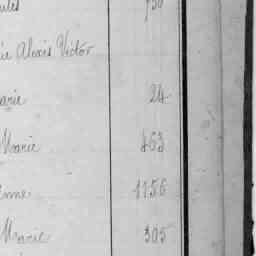 ie Alexis Victor
arie 24
Marie 463
nne 1156
Marie 305